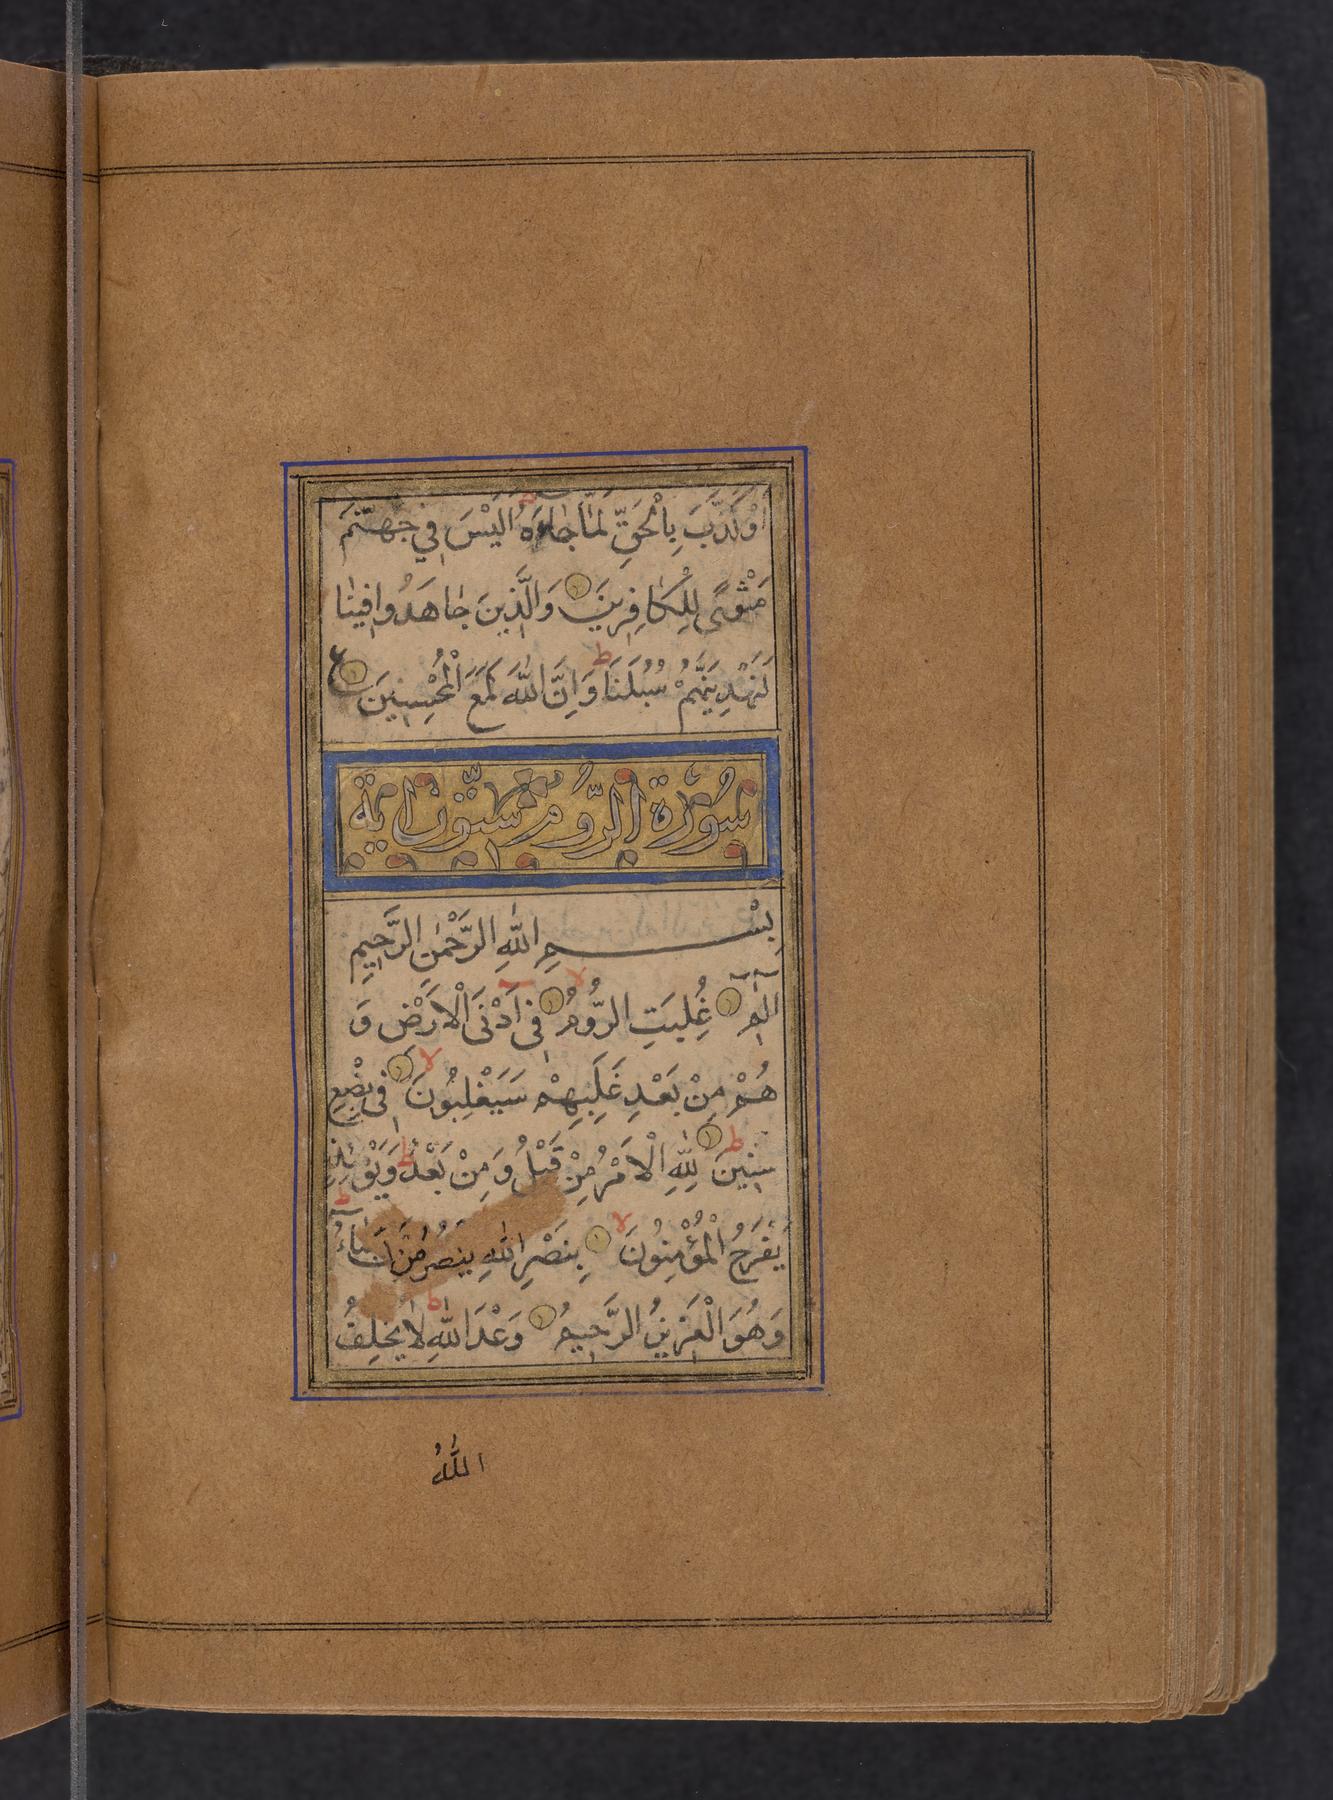 أَوْ كَذَّبَ بِالْحَقِّ لَمَّا جَاءَهُ ط اَلَيْسَ فِي جَهَنَّمَ
مَثْوًى لِلْكَافِرِينَ وَالَّذِينَ جَاهَدُوا فِينَا
لَنَهْدِيَنَّهُمْ سُبُلَنَا ط وَاِنَّ اللّٰهَ لَمَعَ الْمُحْسِنِينَ ع
سُورَةُ الرُّومِ سِتُّونَ ايَة
بِسْمِ اللّٰهِ الرَّحْمٰنِ الرَّحِيمِ
الٓمٓ غُلِبَتِ الرُّومُ لا فِى اَدْنَى الْاَرْضِ وَ
هُمْ مِنْ بَعْدِ غَلَبِهِمْ سَيَغْلِبُونَ لا فِى بِضْعِ
سِنِينَ ط لِلّٰهِ الْاَمْرُ مِنْ قَبْلُ وَمِنْ بَعْدُ ط وَيَوْمَئِذٍ
يَفْرَحُ الْمُؤْمِنُونَ لا بِنَصْرِ اللّٰهِ يَنْصُرُ مَنْ يَشَاءُ ط
وَهُوَ الْعَزِيزُ الرَّحِيمُ وَعْدَ اللّٰهِ ط لَا يُخْلِفُ
اللّٰهُ